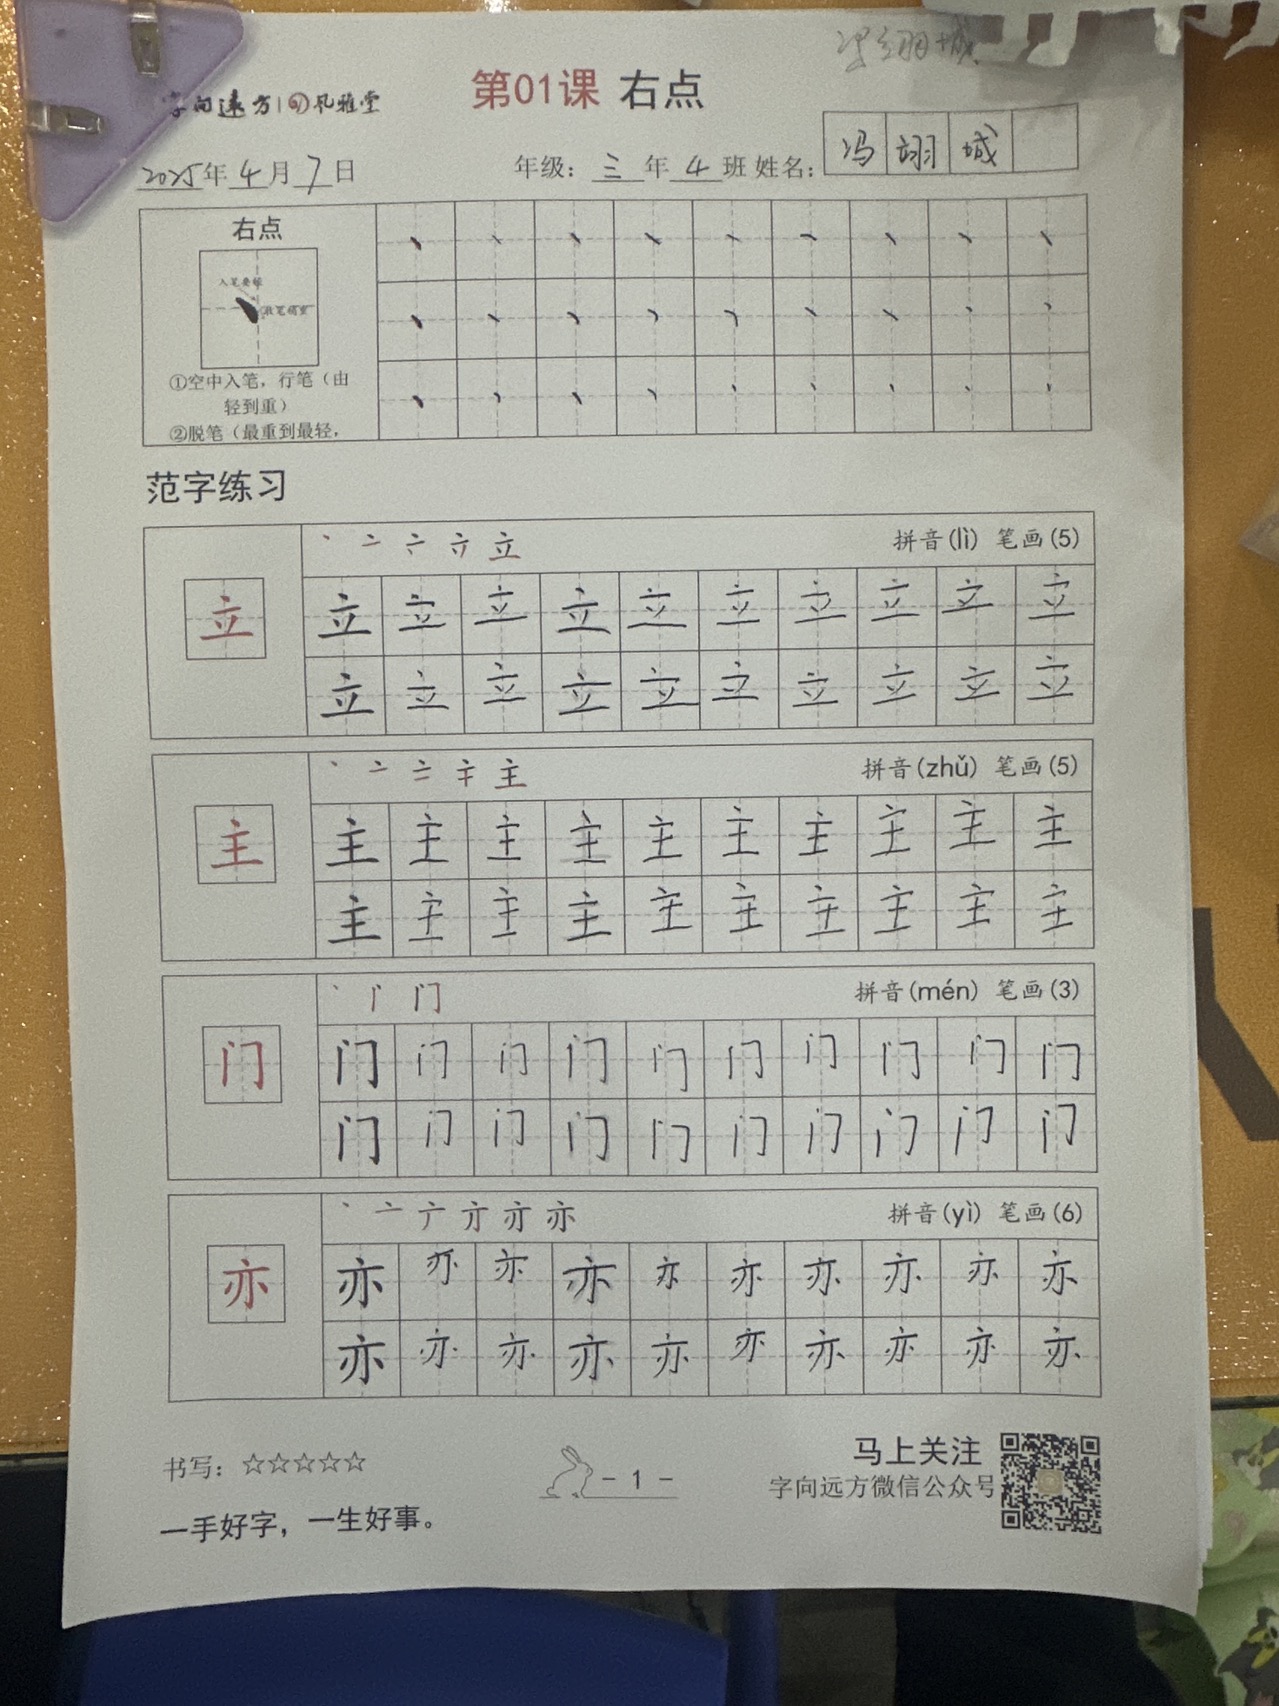 冯翊城
字向远方 风雅堂
第01课 右点
2025年4月7日 年级：三年4班 姓名：冯翊城
右点
①空中入笔，行笔（由
轻到重）
②脱笔（最重到最轻，
范字练习
丶 亠 立
拼音(lì) 笔画(5)
立
立 立 立 立 立 立 立 立 立 立
立 立 立 立 立 立 立 立 立 立
丶 亠 主
拼音(zhǔ) 笔画(5)
主
主 主 主 主 主 主 主 主 主 主
主 主 主 主 主 主 主 主 主 主
丶 门
拼音(mén) 笔画(3)
门
门 门 门 门 门 门 门 门 门 门
门 门 门 门 门 门 门 门 门 门
丶 亠 亦
拼音(yì) 笔画(6)
亦
亦 亦 亦 亦 亦 亦 亦 亦 亦 亦
亦 亦 亦 亦 亦 亦 亦 亦 亦 亦
书写：☆☆☆☆☆
一手好字，一生好事。
- 1 -
马上关注
字向远方微信公众号